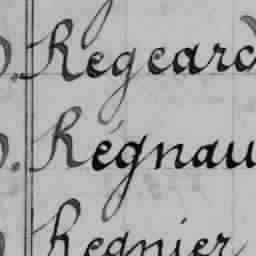 Regeard
Régnau
Regnier